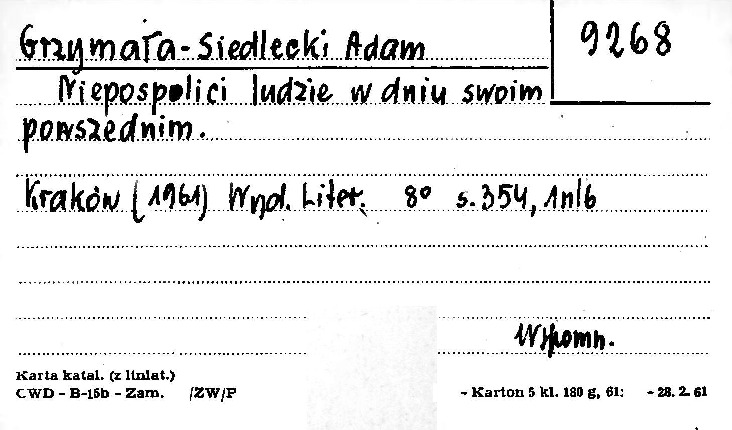 Grzymała-Siedlecki Adam
9268
Niepospolici ludzie w dniu swoim
powszednim.
Kraków (1961) Wyd. Liter. 8° s. 354, 1nlb
Wspomn.
Karta katal. (z liniat.)
CWD - B-15b - Zam. /ZW/P - Karton 5 kl. 180 g, 61: - 28. 2. 61